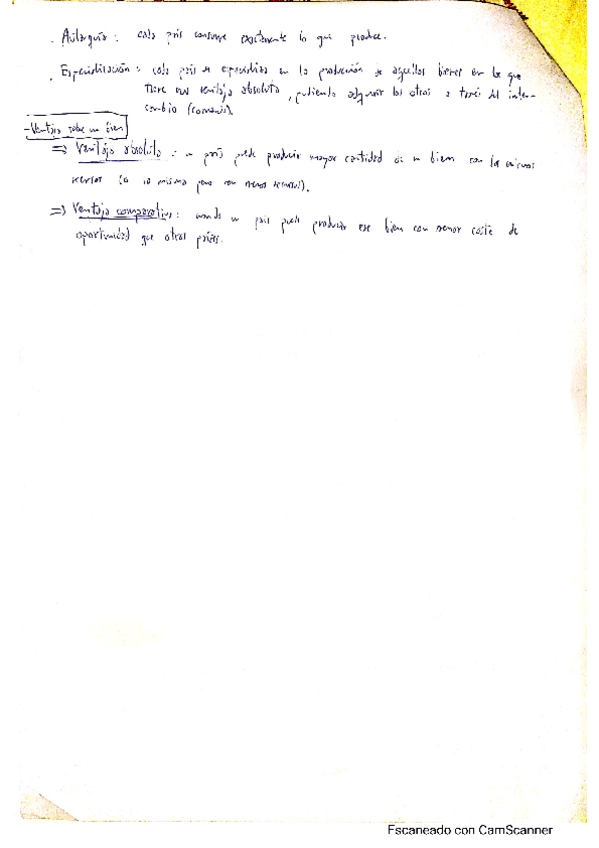 . Autarquía : cada país consume exactamente lo que produce.
. Especialización : cada país se especializa en la producción de aquellos bienes en los que
tiene una ventaja absoluta, pudiendo adquirir los otros a través del inter-
cambio (comercio).
- Ventaja sobre un bien
⇒ Ventaja absoluta : un país puede producir mayor cantidad de un bien con los mismos
recursos (o lo mismo pero con menos recursos).
⇒ Ventaja comparativa : cuando un país puede producir ese bien con menor coste de
oportunidad que otros países.
Escaneado con CamScanner